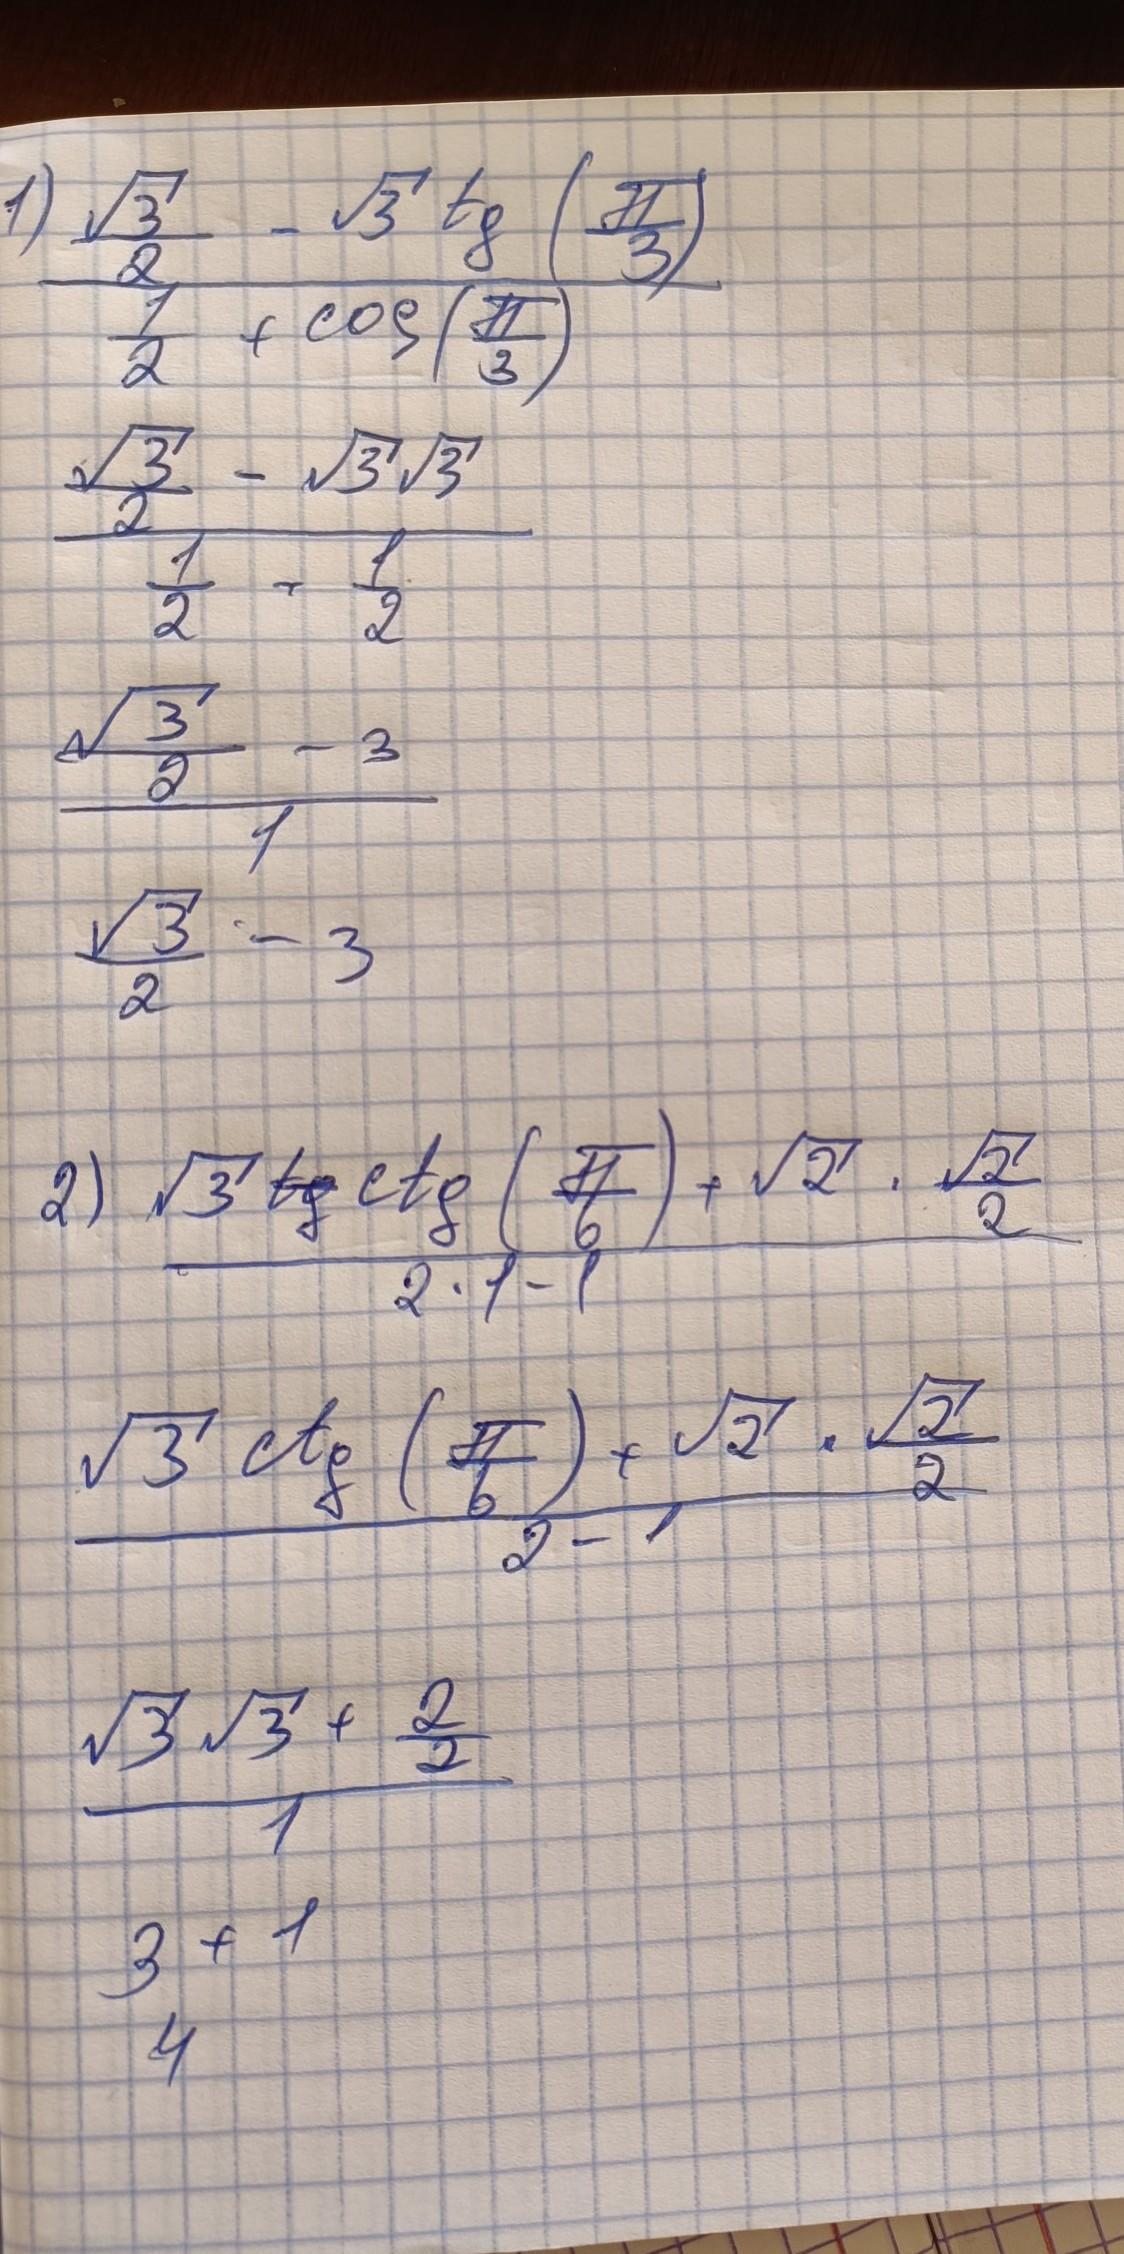 1) (√3/2 - √3 tg(π/3)) / (1/2 + cos(π/3))
(√3/2 - √3√3) / (1/2 + 1/2)
(√3/2 - 3) / 1
√3/2 - 3
2) (√3 ctg(π/6) + √2 · √2/2) / (2·1-1)
(√3 ctg(π/6) + √2 · √2/2) / (2-1)
(√3√3 + 2/2) / 1
3 + 1
4